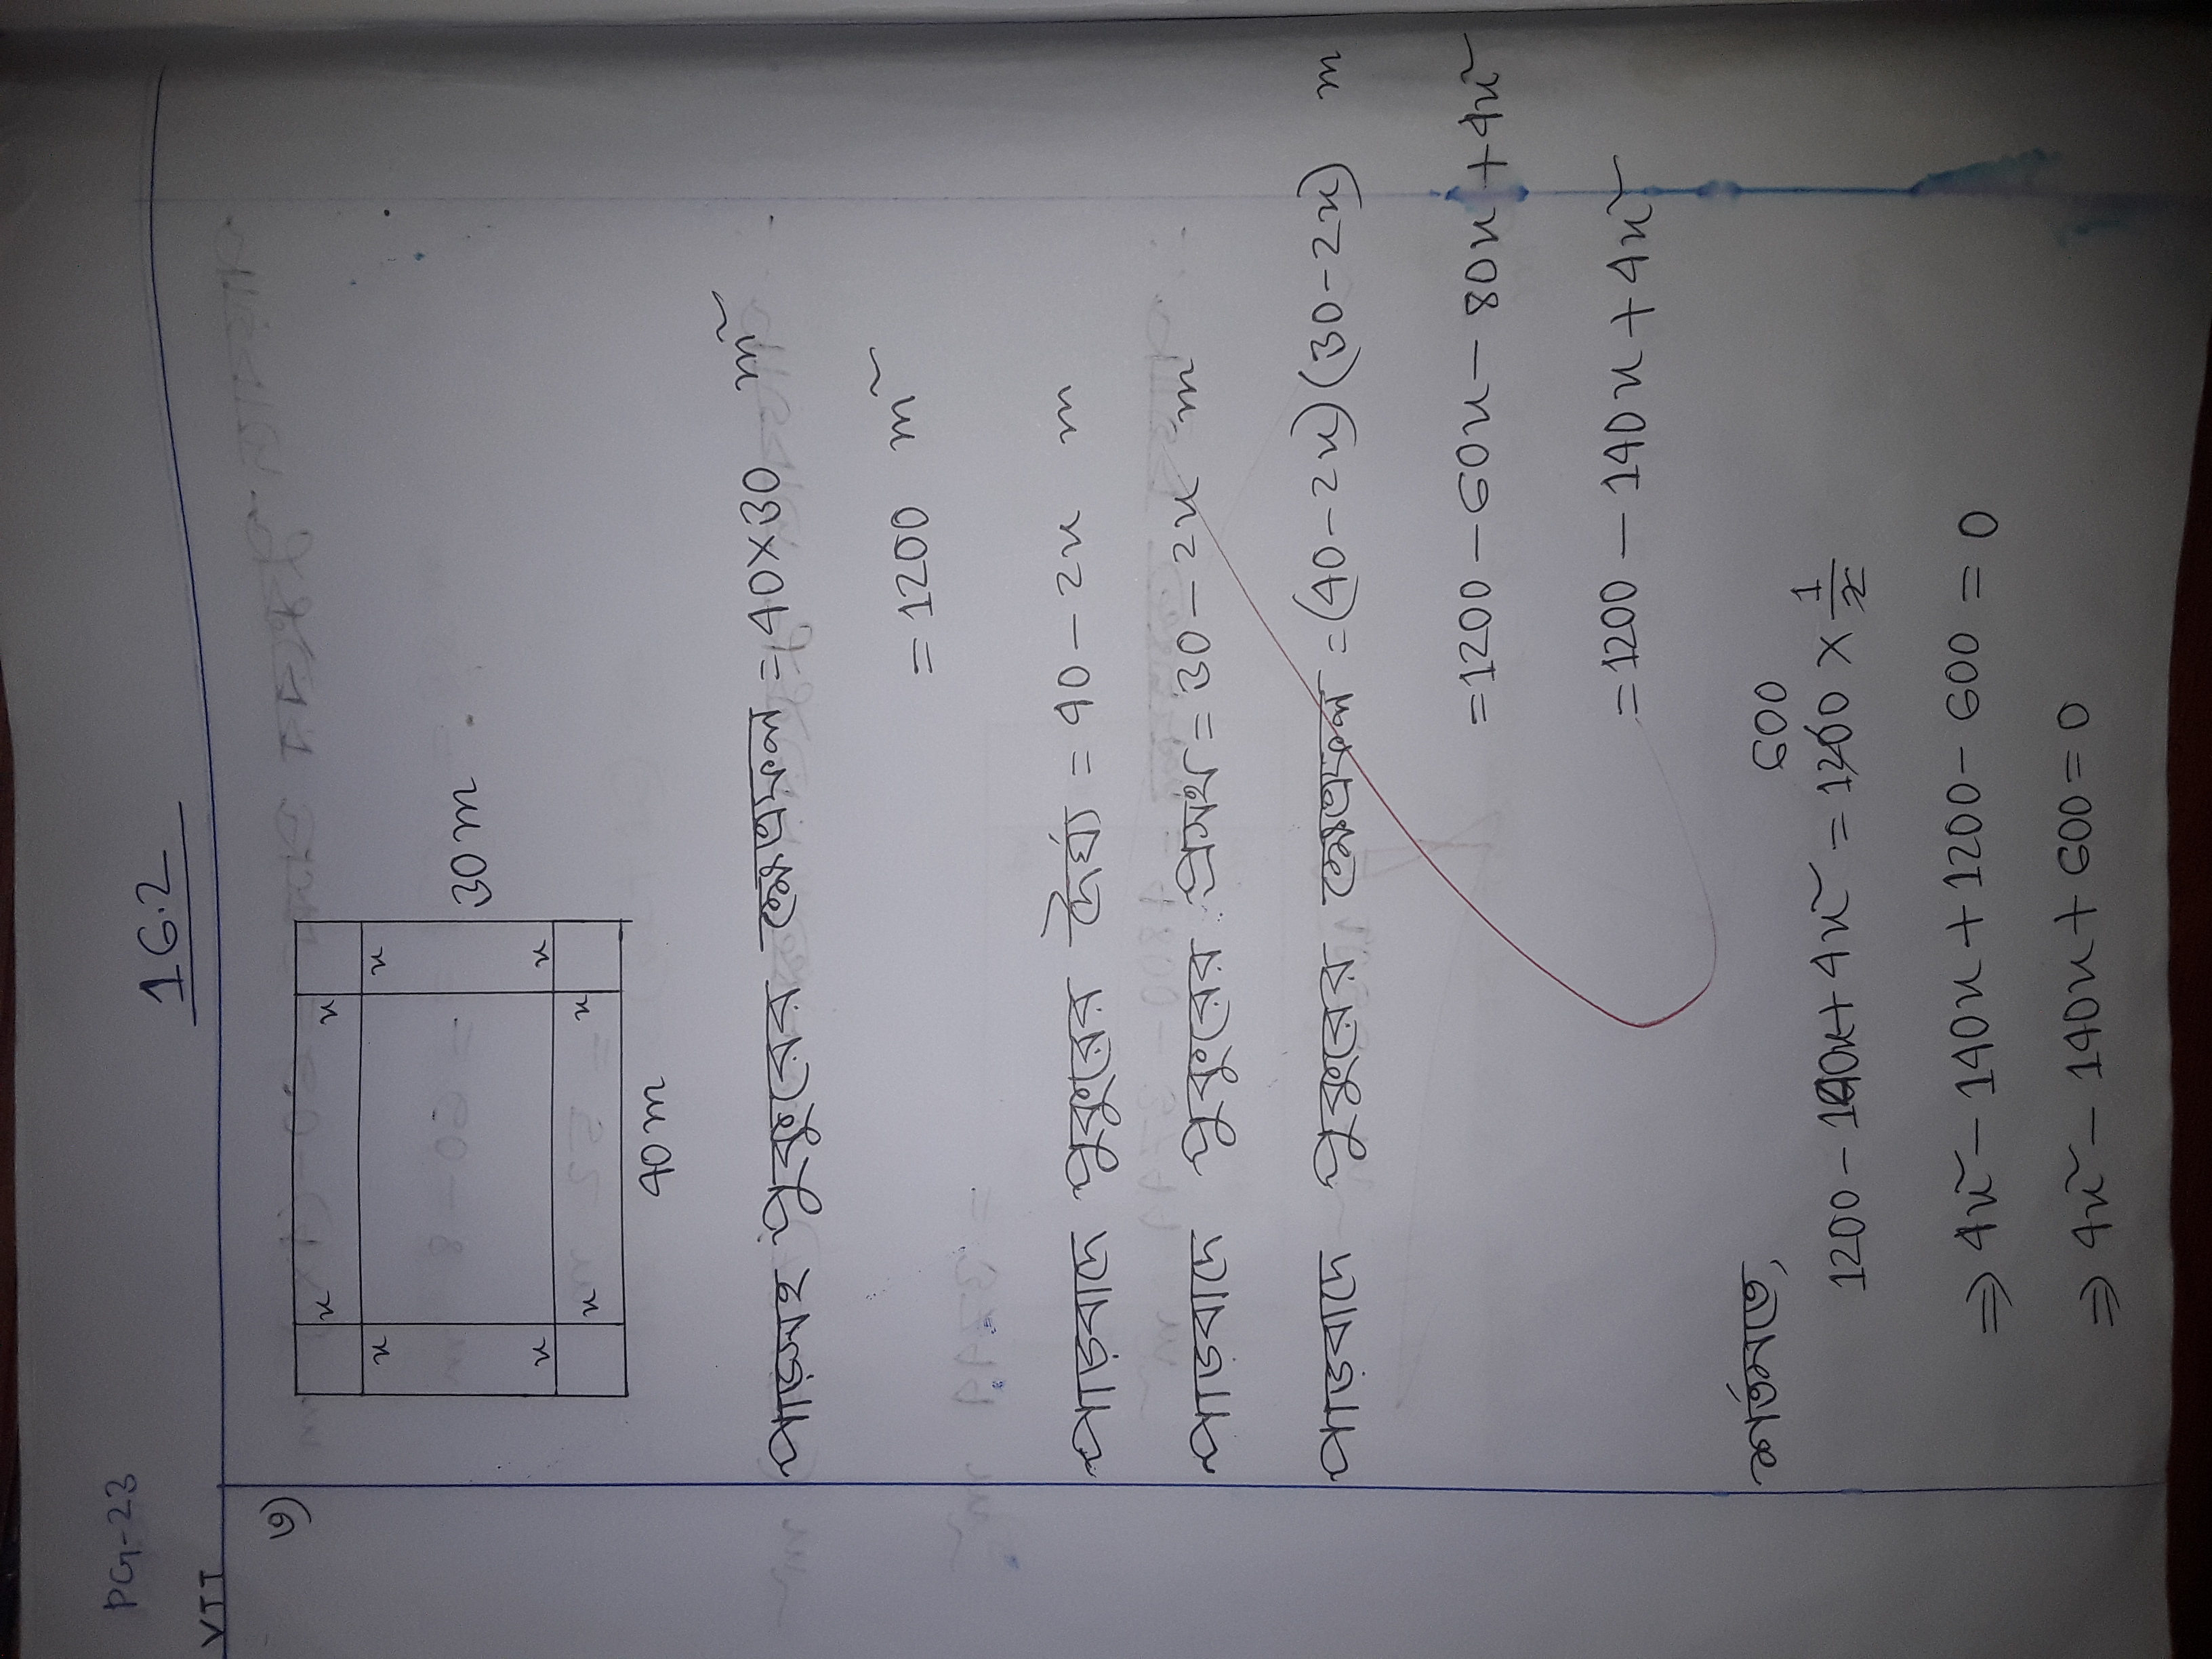 PG-23
16.2
VTT
৩)
x x
x x
30 m
x x
x x
40 m
পাড়সহ পুকুরের ক্ষেত্রফল = 40×30 m²
= 1200 m²
পাড়বাদে পুকুরের দৈর্ঘ্য = 40 - 2x m
পাড়বাদে পুকুরের প্রসথ = 30 - 2x m
পাড়বাদে পুকুরের ক্ষেত্রফল = (40-2x)(30-2x) m
= 1200 - 60x - 80x + 4x²
= 1200 - 140x + 4x²
শর্তমতে,
600
1200 - 140x + 4x² = 1200 × 1/2
⇒ 4x² - 140x + 1200 - 600 = 0
⇒ 4x² - 140x + 600 = 0